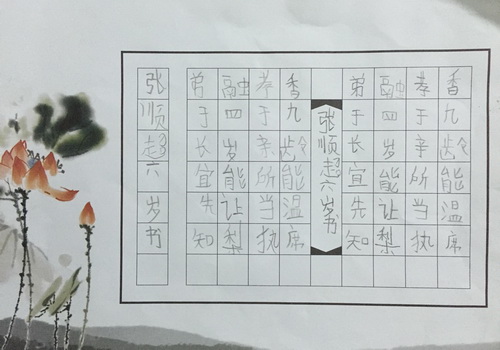 香九龄能温席
孝于亲所当执
融四岁能让梨
弟于长宜先知
张顺超六岁书
香九龄能温席
孝于亲所当执
融四岁能让梨
弟于长宜先知
张顺超六岁书